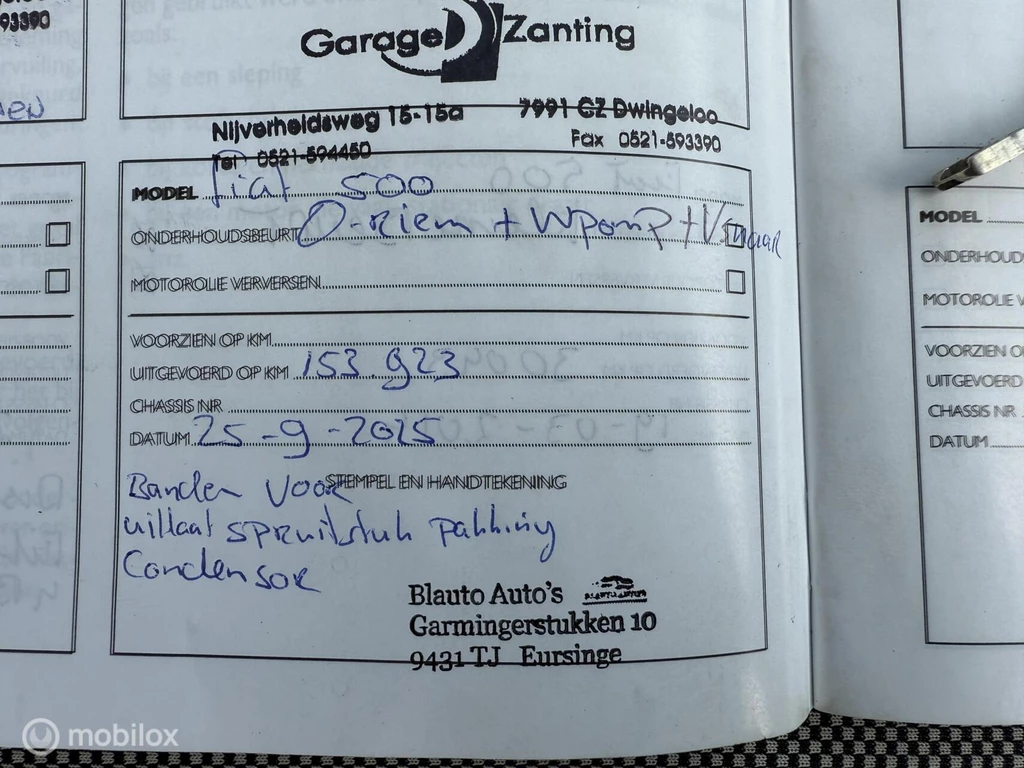 93390
Garage Zanting
Nijverheidsweg 15-15a 7991 CZ Dwingeloo
Tel 0521-594450 Fax 0521-593390
MODEL fiat 500
ONDERHOUDSBEURT D-riem + Wpomp + V snaar
MOTOROLIE VERVERSEN
VOORZIEN OP KM
UITGEVOERD OP KM 153.923
CHASSIS NR
DATUM 25-9-2025
STEMPEL EN HANDTEKENING
Banden Voor
uitlaat spruitstuk pakking
Condensor
Blauto Auto's
Garmingerstukken 10
9431 TJ Eursinge
MODEL
ONDERHOUD
MOTOROLIE V
VOORZIEN O
UITGEVOERD
CHASSIS NR
DATUM
mobilox